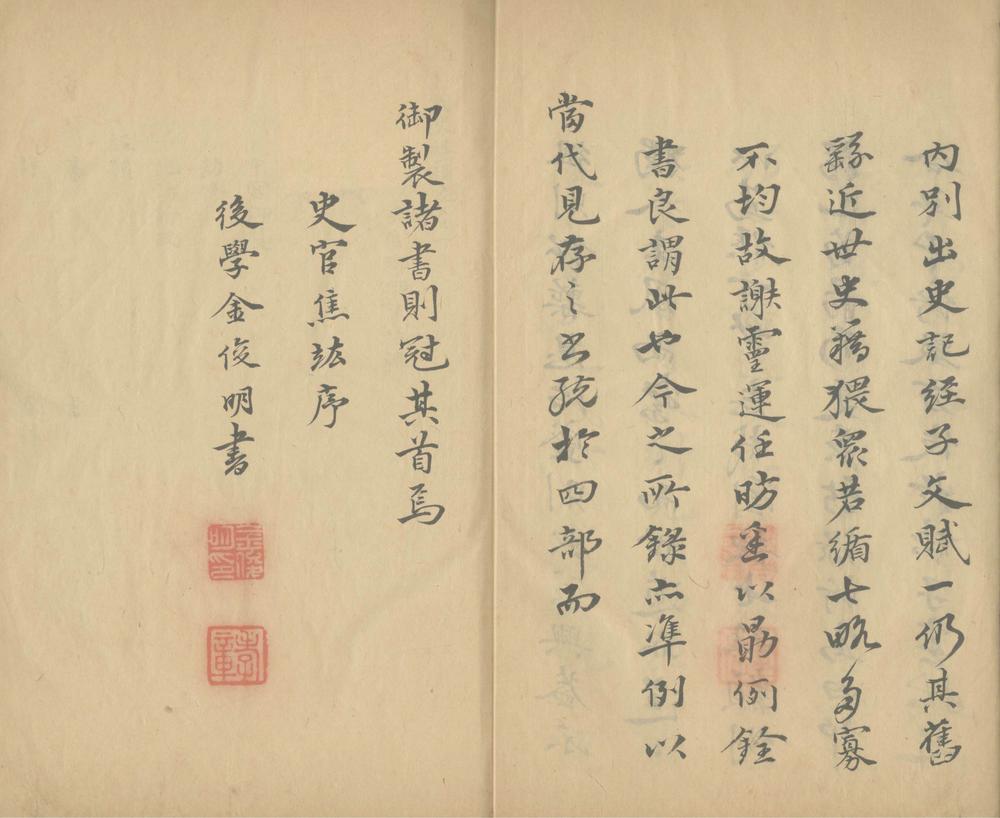 内別出史記經子文賦一仍其舊
繇近世史籍猥眾若循七略多寡
不均故謝靈運任昉悉以勗例銓
書良謂此也今之所錄亦準例以
當代見存之書統於四部而
御製諸書則冠其首焉
史官焦竑序
後學金俊明書
金俊明印
孝章